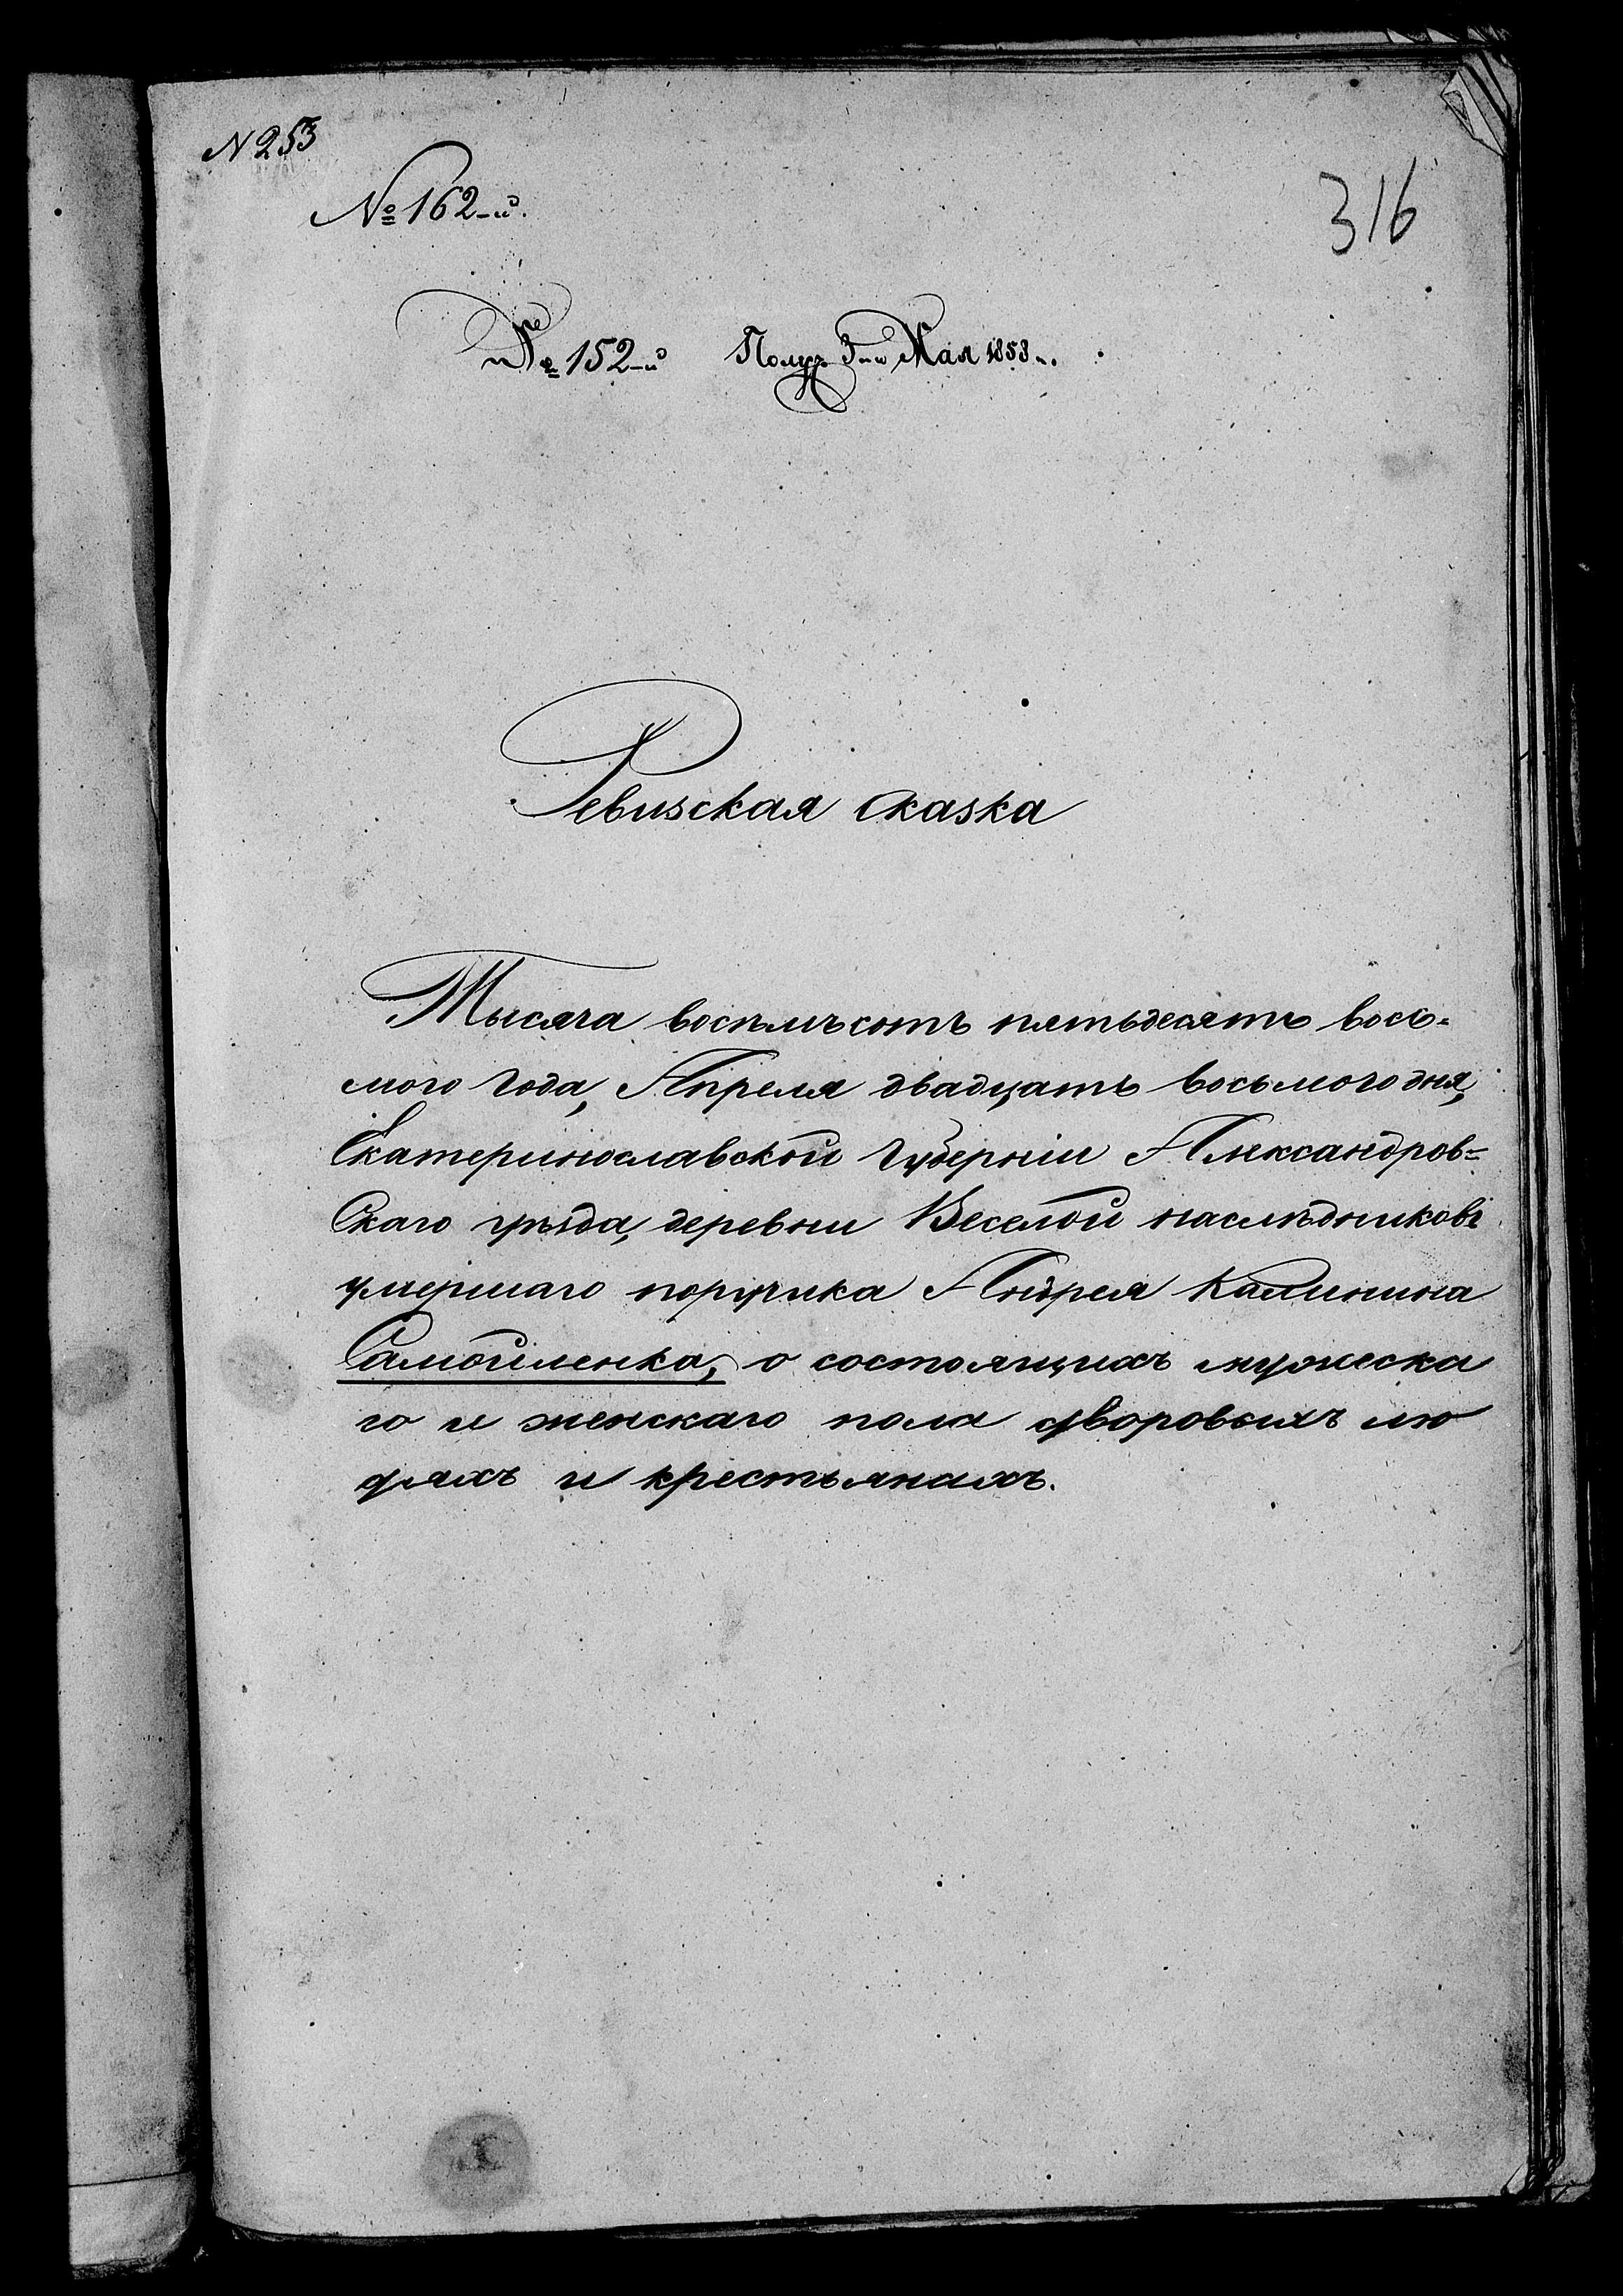 N 253
№ 162-й.
316
№ 152-й Получ 3-го Мая 1858 г.
Ревизская сказка
Тысяча восемъсотъ пятьдесятъ вось-
мого года, Апреля двадцать восьмого дня,
Екатеринославской губернии Александров-
скаго уѣзда, деревни Веселой наслѣдниковъ
умершаго поручика Андрея Калинина
Самойленка, о состоящихъ мужеска
го и женскаго пола дворовыхъ лю
дяхъ и крестьянахъ.